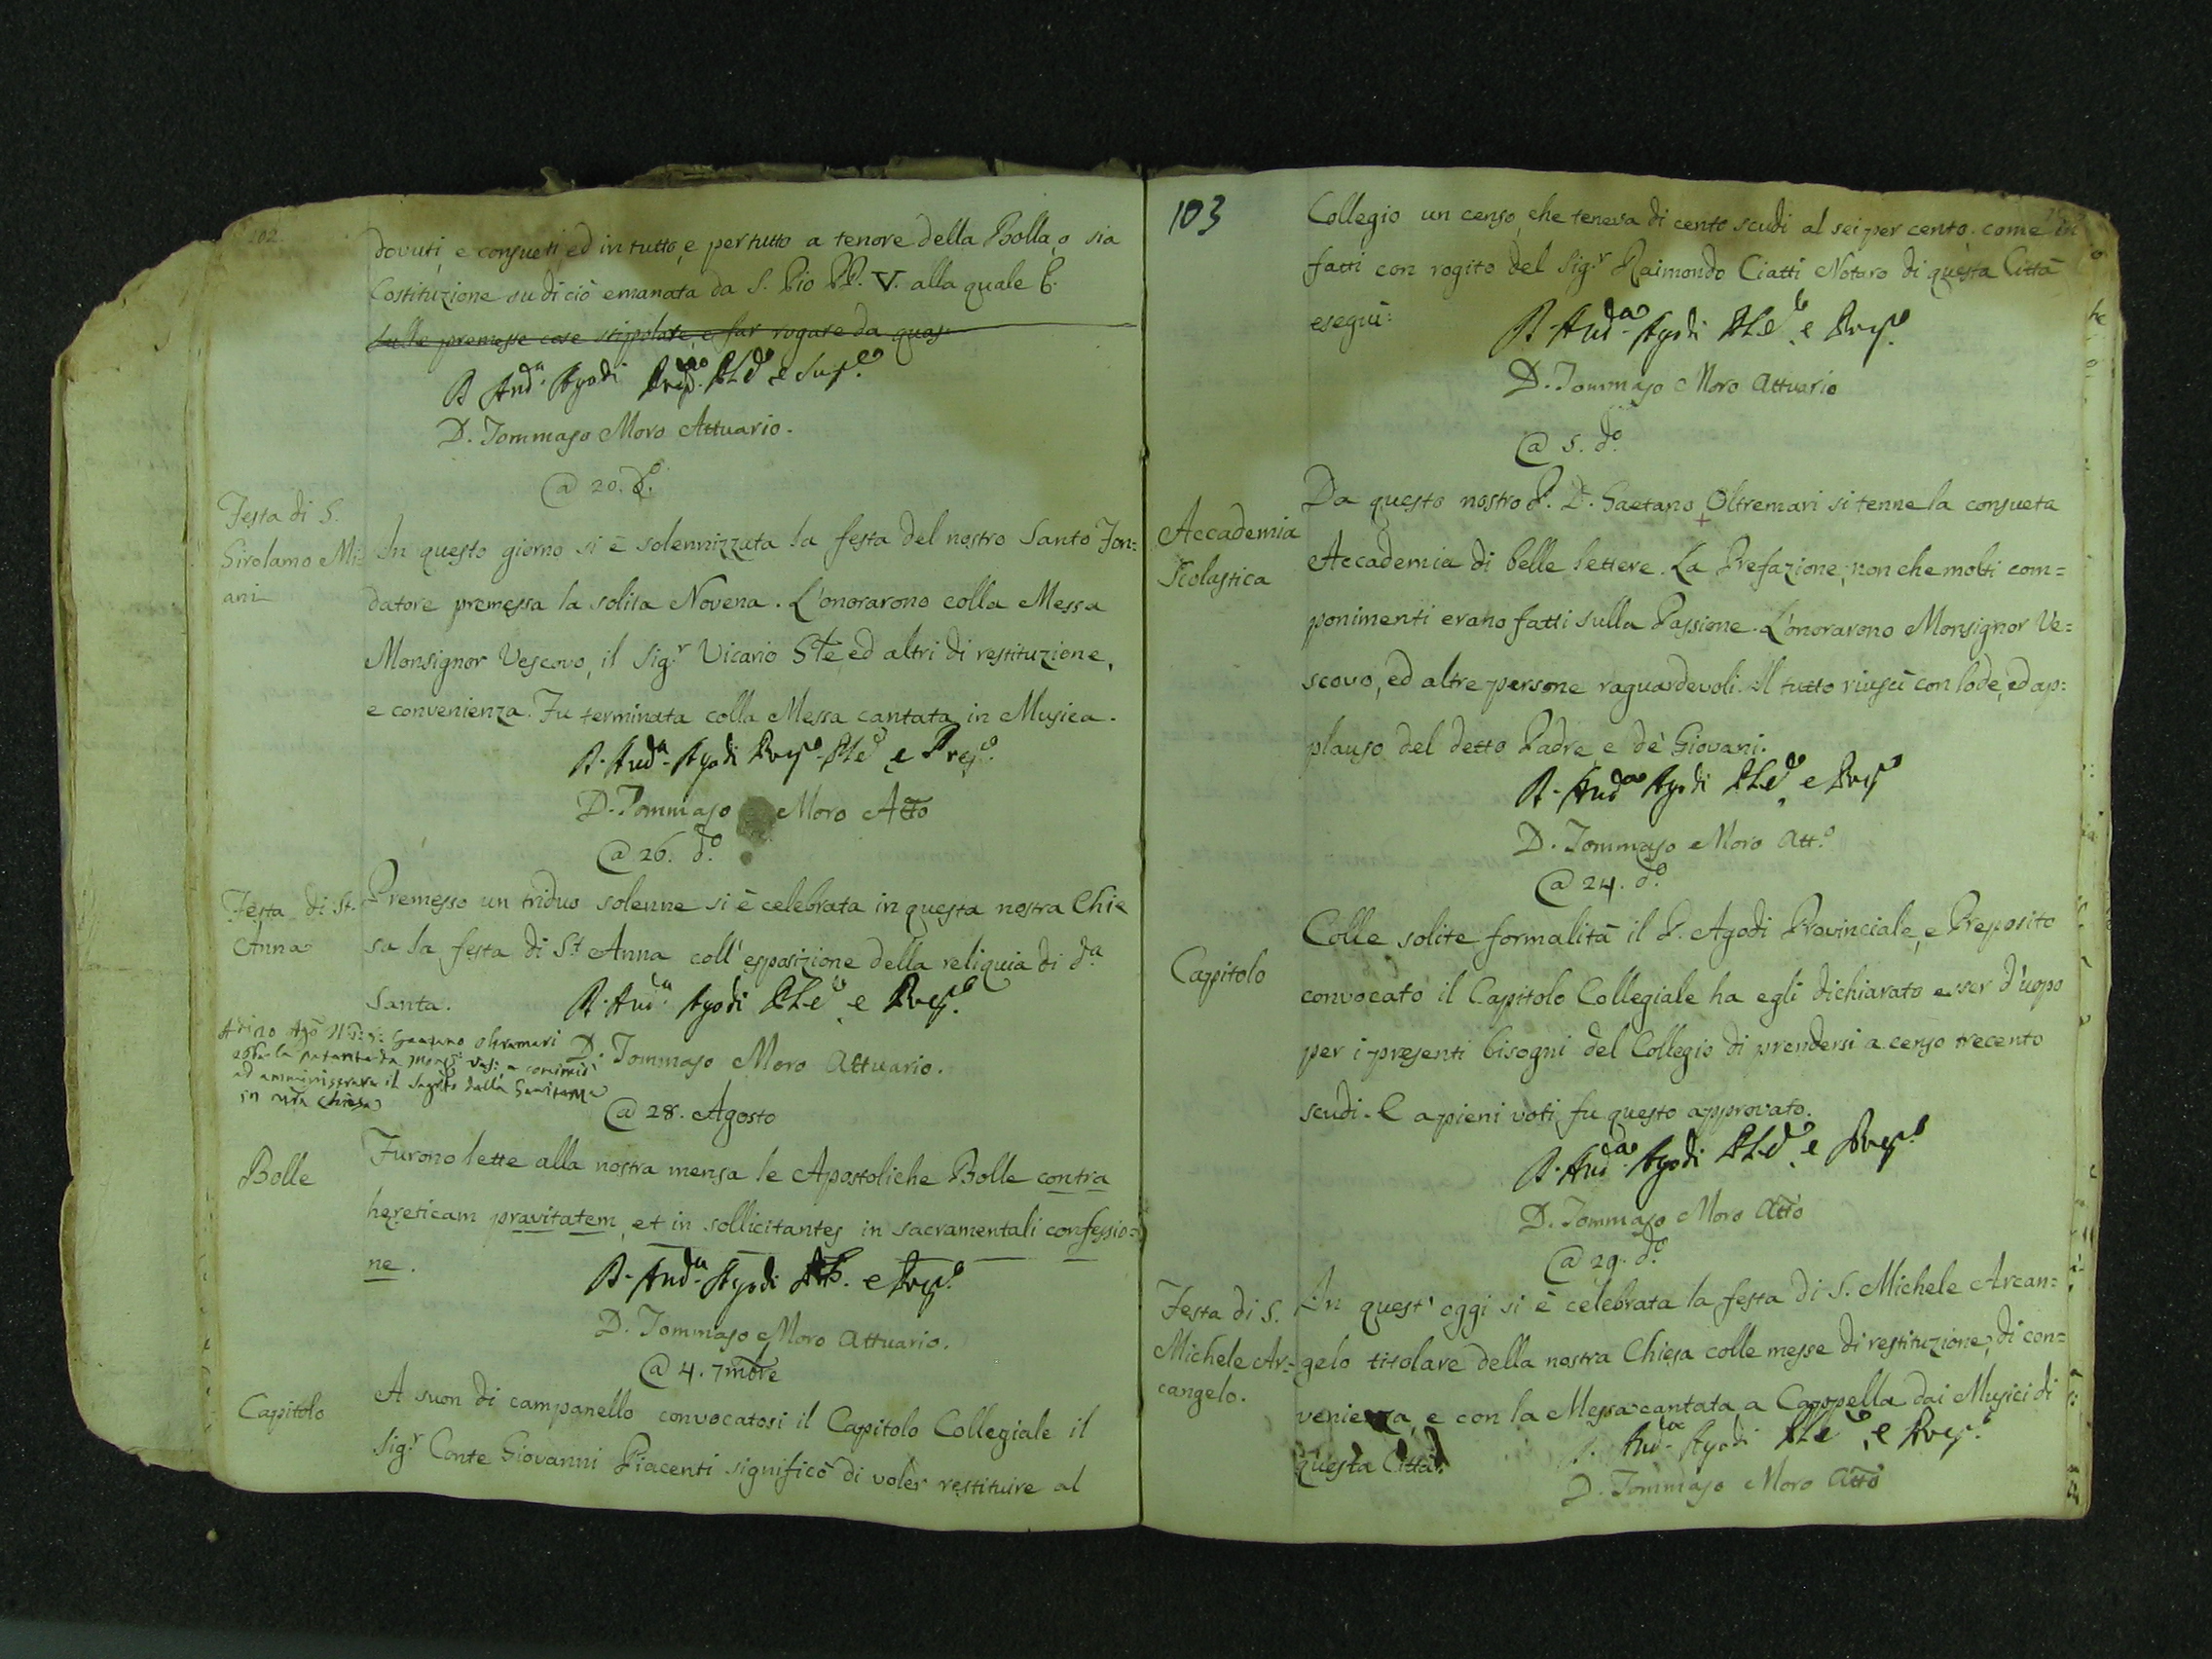 102.
dovuti, e consueti, ed in tutto, e per tutto a tenore della Bolla, o sia
Costituzione su di ciò emanata da S. Pio PP. V. alla quale &.
sulle premesse cose stippolare, e far rogare da quas-
D. And.ª Agodi
D. Tommaso Moro Attuario.
@ 20. d.º
Festa di S.
Girolamo Mi=
ani
In questo giorno si è solennizzata la festa del nostro Santo Fon=
datore premessa la solita Novena. L'onorarono colla Messa
Monsignor Vescovo, il Sig.r Vicario S.te ed altri di restituzione,
e convenienza. Fu terminata colla Messa cantata in Musica.
D. And.ª Agodi
D. Tommaso Moro Atto
@ 26. d.º
Festa di St.
Anna
Premesso un triduo solenne si è celebrata in questa nostra Chie
sa la festa di St Anna coll'esposizione della reliquia di d.ª
Santa.
D. And.ª Agodi
Gaetano Oltremari
in nra Chiesa
D. Tommaso Moro Attuario.
@ 28. Agosto
Bolle
Furono lette alla nostra mensa le Apostoliche Bolle contra
hereticam pravitatem, et in sollicitantes in sacramentali confessio=
ne.
D. And.ª Agodi
D. Tommaso Moro Attuario.
@ 4. 7mbre
Capitolo
A suon di campanello convocatosi il Capitolo Collegiale il
Sig.r Conte Giovanni Piacenti significò di voler restituire al
103
Collegio un censo, che teneva di cento scudi al sei per cento, come in
fatti con rogito del Sig.r Raimondo Ciatti Notaro di questa Città
eseguì:
D. And.ª Agodi
D. Tommaso Moro Attuario
@ 5. d.º
Accademia
Scolastica
Da questo nostro P. D. Gaetano Oltremari si tenne la consueta
Accademia di belle lettere. La Prefazione, non che molti com=
ponimenti erano fatti sulla Passione. L'onorarono Monsignor Ve=
scovo, ed altre persone raguardevoli. Il tutto riuscì con lode, ed ap=
plauso del detto Padre, e de' Giovani.
D. And.ª Agodi
D. Tommaso Moro Att.º
@ 24. d.º
Capitolo
Colle solite formalità il P. Agodi Provinciale, e Preposito
convocato il Capitolo Collegiale ha egli dichiarato esser d'uopo
per i presenti bisogni del Collegio di prendersi a censo trecento
scudi. E a pieni voti fu questo approvato.
D. And.ª Agodi
D. Tommaso Moro Atto
@ 29. d.º
Festa di S.
Michele Ar=
cangelo.
In quest'oggi si è celebrata la festa di S. Michele Arcan=
gelo titolare della nostra Chiesa colle messe di restituzione, di con=
venienza, e con la Messa cantata a Cappella dai Musici di
questa Città.
And.ª Agodi
D. Tommaso Moro Atto